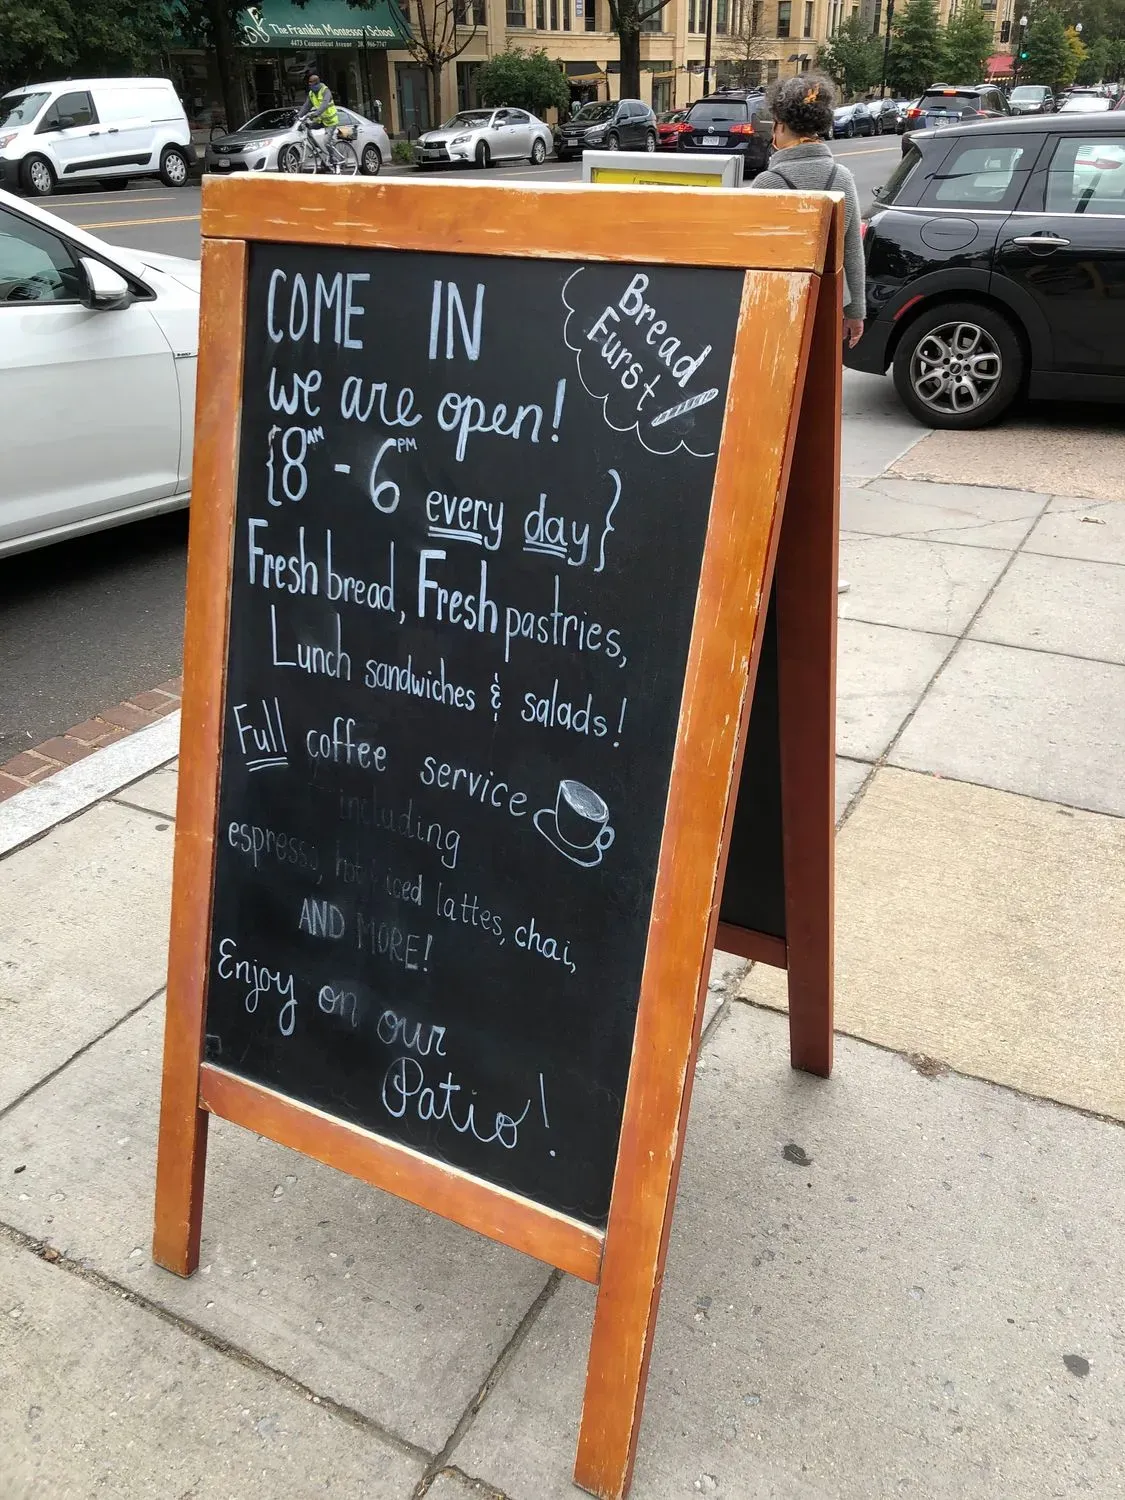 The Franklin Montessori School
4473 Connecticut Avenue
COME IN
we are open!
{8AM - 6PM every day}
Bread
Furst
Fresh bread, Fresh pastries,
Lunch sandwiches & salads!
Full coffee service
including
espresso, hot iced lattes, chai,
AND MORE!
Enjoy on our
Patio!